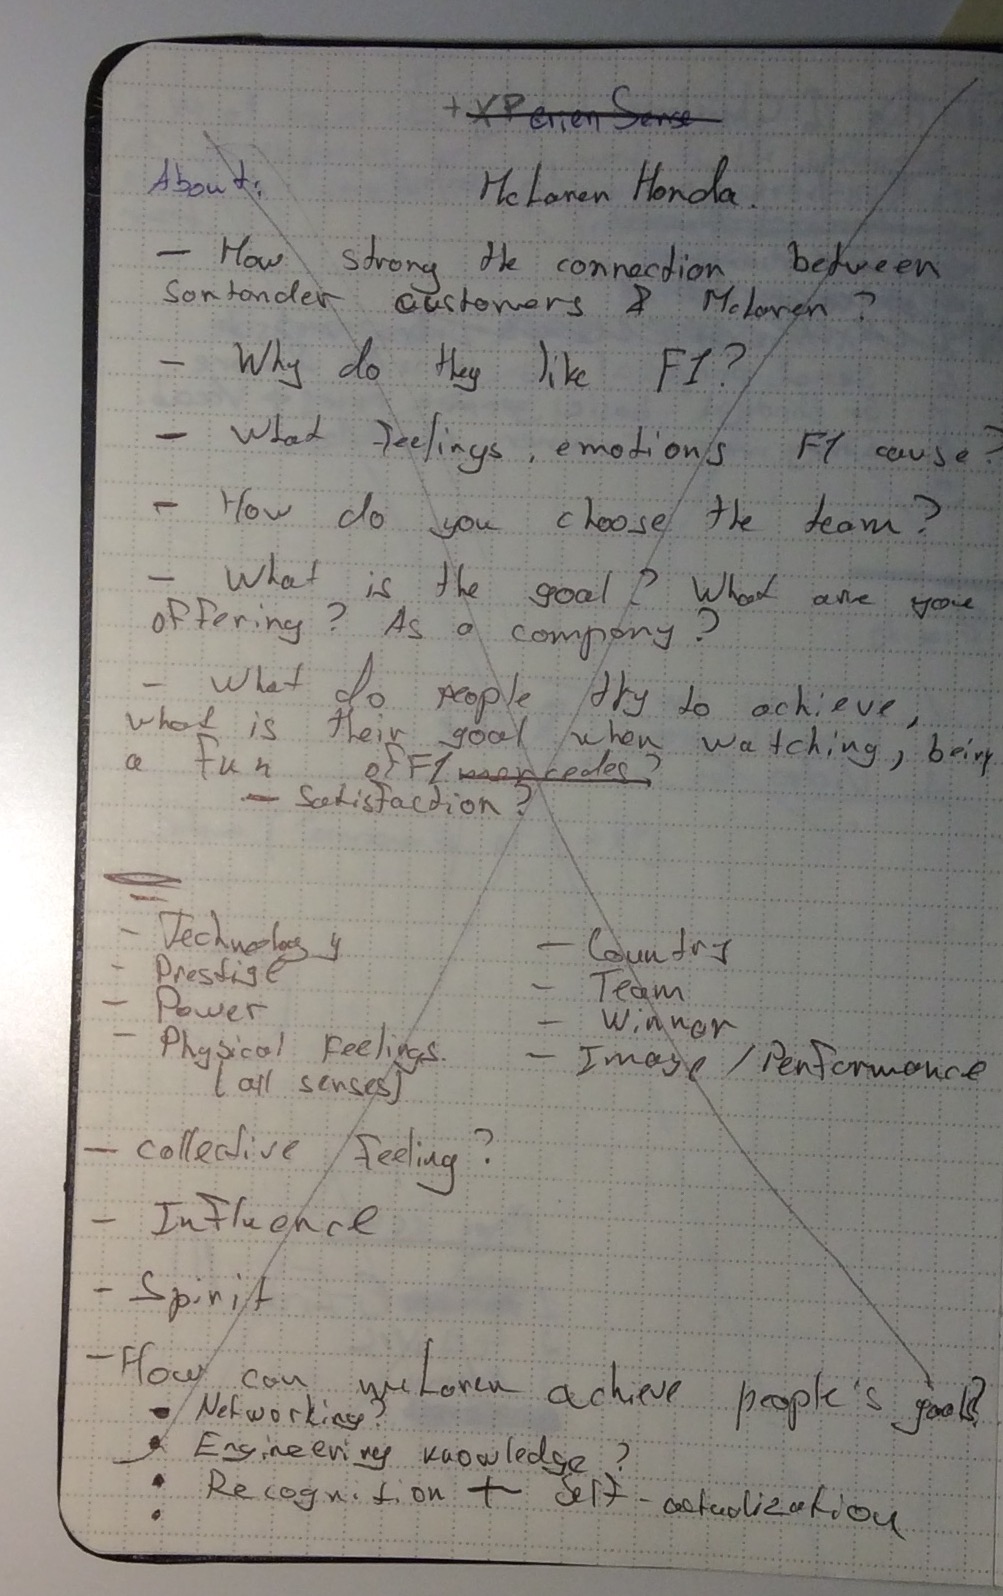 +XPerienSense
About: McLaren Honda.
- How strong the connection between
Santander customers & McLaren?
- Why do they like F1?
- What feelings, emotions F1 cause?
- How do you choose the team?
- What is the goal? What are you
offering? As a company?
- What do people try to achieve,
what is their goal when watching, being
a fun of F1 mercedes?
- Satisfaction?
- Technology
- Prestige
- Power
- Physical Feelings.
[all senses]
- Country
- Team
- Winnar
- Image / Performance
- collective Feeling?
- Influence
- Spirit
- How can mcLaren achieve people's goals?
• Networking?
• Engineering knowledge?
• Recognition + Self-actualization
•